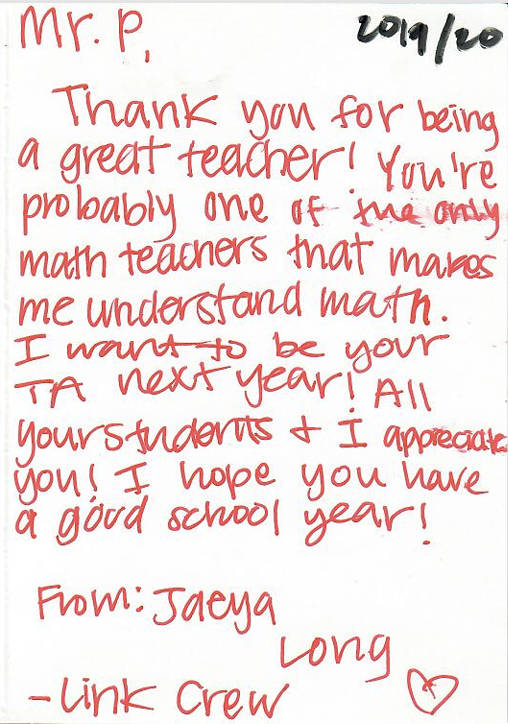 Mr. P,
2019/20
Thank you for being
a great teacher! You're
probably one of the only
math teachers that makes
me understand math.
I want to be your
TA next year! All
your students + I appreciate
you! I hope you have
a good school year!
From: Jaeya
Long
-Link Crew